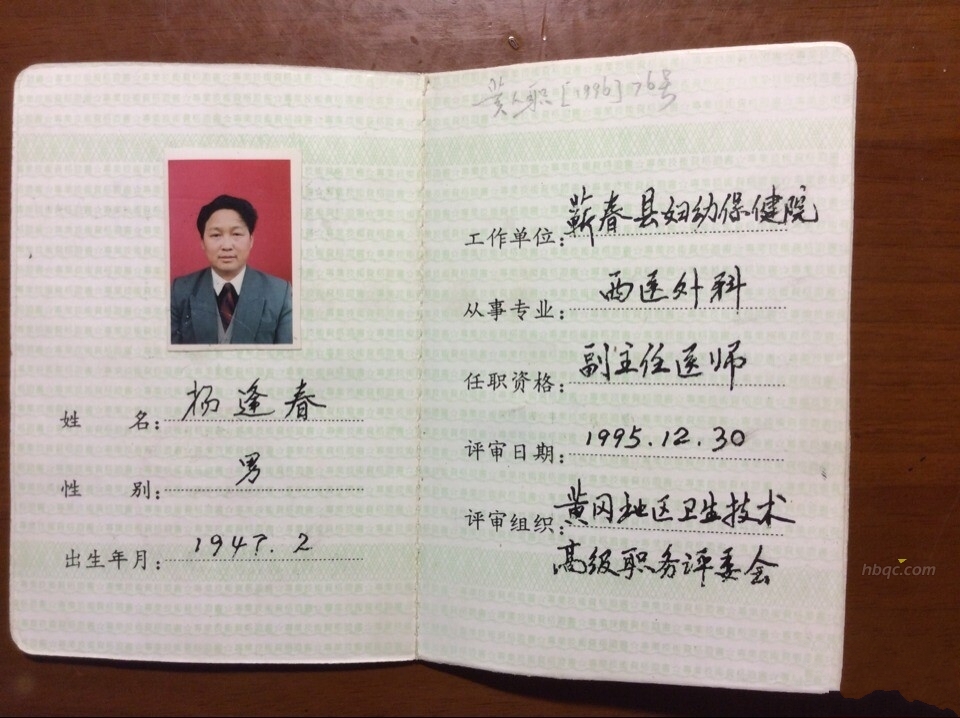 姓 名: 杨逢春
性 别: 男
出生年月: 1947.2
黄人职[1996]76号
工作单位: 蕲春县妇幼保健院
从事专业: 西医外科
任职资格: 副主任医师
评审日期: 1995.12.30
评审组织: 黄冈地区卫生技术
高级职务评委会
hbqc.com